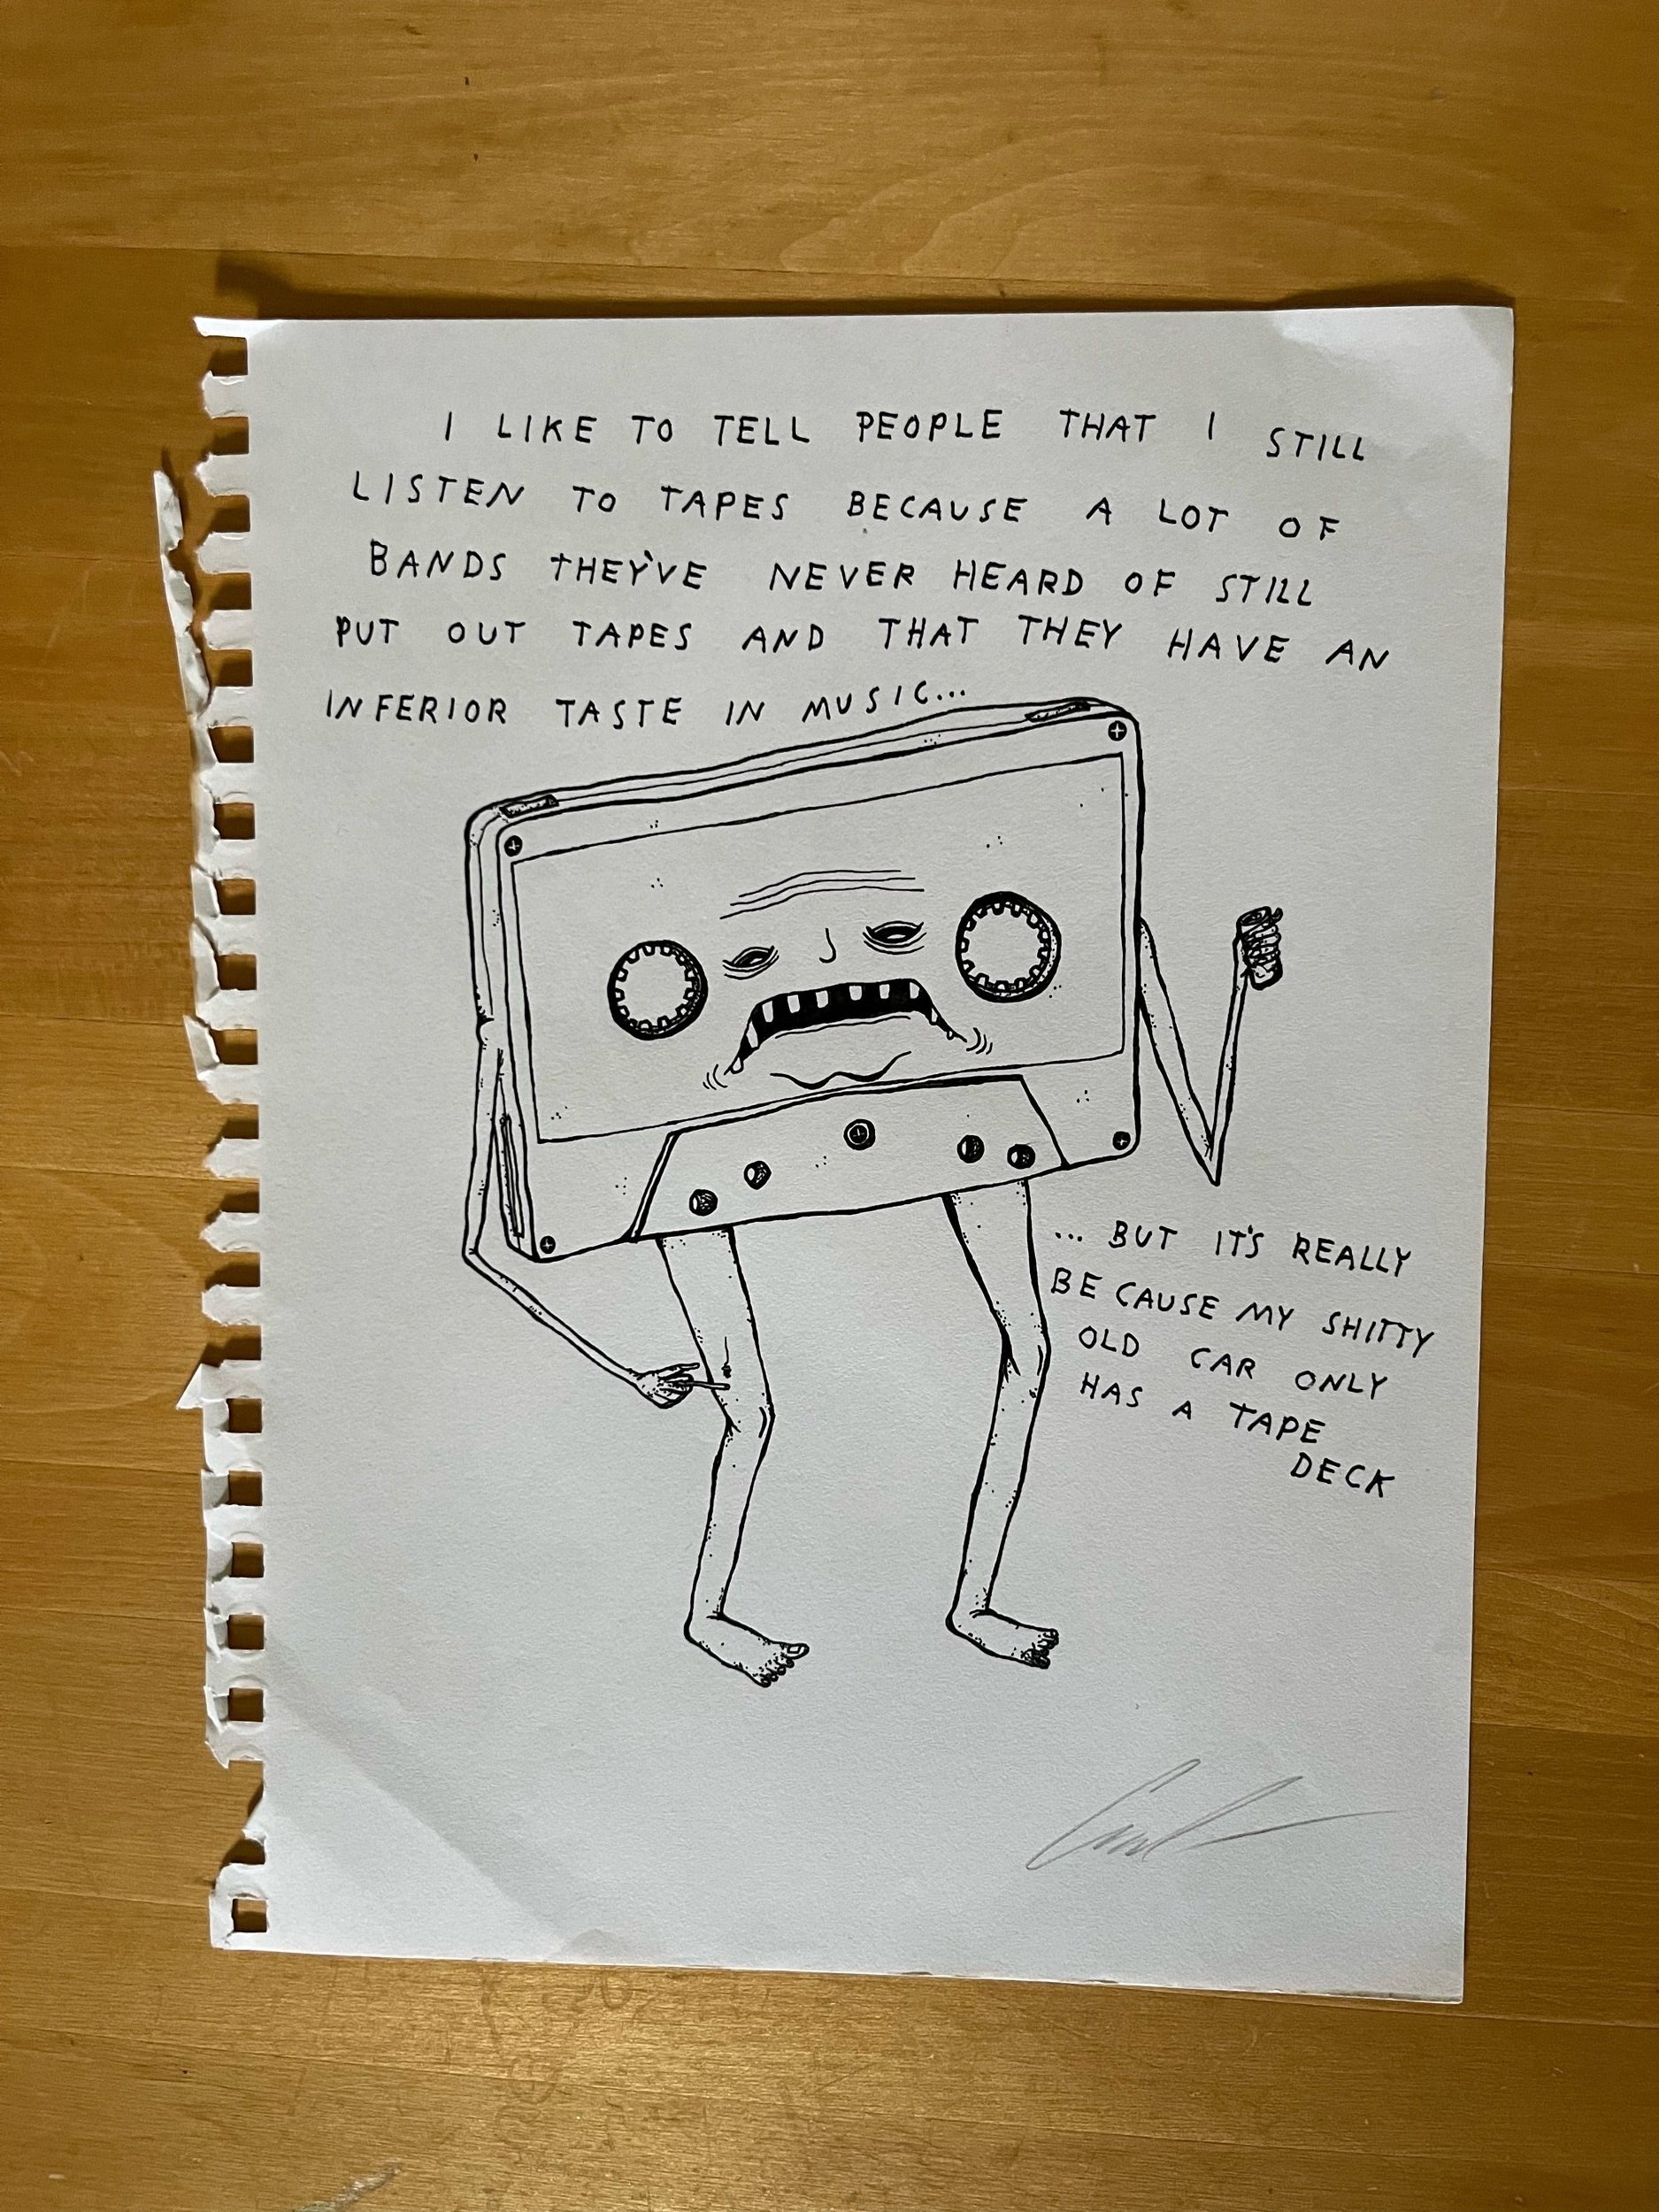 I LIKE TO TELL PEOPLE THAT I STILL
LISTEN TO TAPES BECAUSE A LOT OF
BANDS THEY'VE NEVER HEARD OF STILL
PUT OUT TAPES AND THAT THEY HAVE AN
INFERIOR TASTE IN MUSIC...
... BUT IT'S REALLY
BECAUSE MY SHITTY
OLD CAR ONLY
HAS A TAPE
DECK